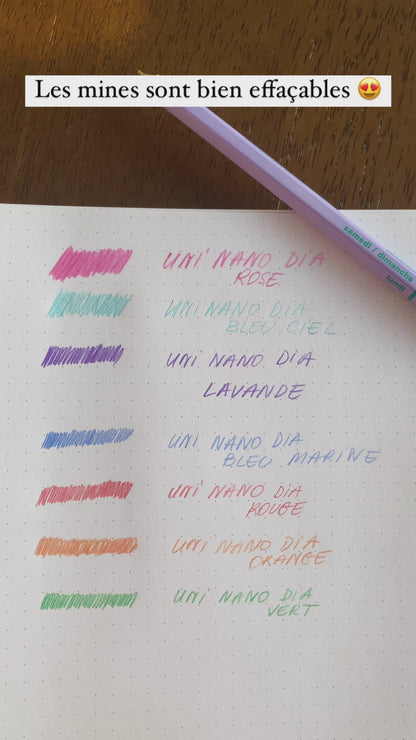 Les mines sont bien effaçables 😍
samedi / dimanche
UNI NANO DIA
ROSE
UNI NANO DIA
BLEU CIEL
UNI NANO DIA
LAVANDE
UNI NANO DIA
BLEU MARINE
UNI NANO DIA
ROUGE
UNI NANO DIA
ORANGE
UNI NANO DIA
VERT